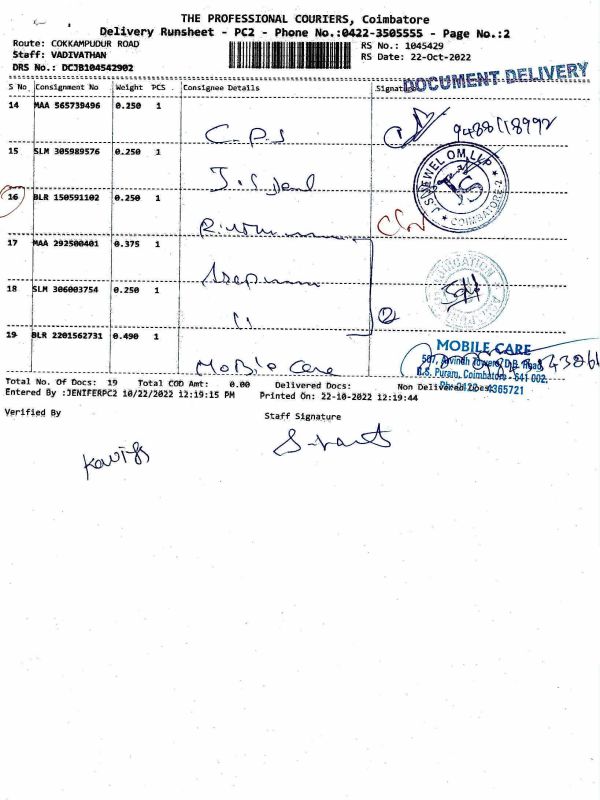 THE PROFESSIONAL COURIERS, Coimbatore
Delivery Runsheet - PC2 - Phone No.:0422-3505555 - Page No.:2
Route: COKKAMPUDUR ROAD
RS No.: 1045429
Staff: VADIVATHAN
RS Date: 22-Oct-2022
DRS No.: DCJB104542902
DOCUMENT DELIVERY
S No Consignment No Weight PCS Consignee Details
14 MAA 565739496 0.250 1
C.P.S
15 SLM 305989576 0.250 1
16 BLR 150591102 0.250 1
17 MAA 292500401 0.375 1
18 SLM 306003754 0.250 1
11
2
19 BLR 2201562731 0.490 1
Mobile Care
MOBILE CARE
R.S. Puram, Coimbatore - 641 002.
Total No. Of Docs: 19 Total COD Amt: 0.00 Delivered Docs:
Entered By :JENIFERPC2 10/22/2022 12:19:15 PM Printed On: 22-10-2022 12:19:44
Verified By
Staff Signature